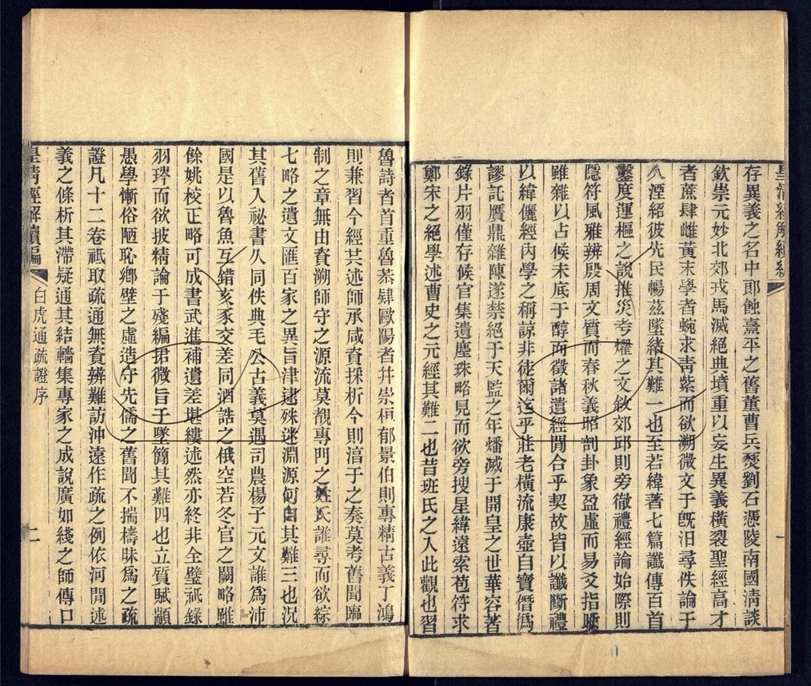 皇清經解續編
存異義之名中郎蝕熹平之舊董曹兵燹劉石憑陵南國淸談
欽崇元妙北郊戎馬滅絕典墳重以妄生異義橫裂聖經高才
者蔗肆雌黃末學者蜿求靑紫而欲溯微文于旣汨尋佚論于
久湮絕彼先民暢茲墜緒其難一也至若緯著七篇讖傳百首
鑿度運樞之說推災考燿之文敘郊邱則旁徵禮經論始際則
隱符風雅辨殷周文質而春秋義昭剖卦象盈虛而易爻指賾
雖雜以占候未底于醇而徵諸遺經閒合乎契故皆以讖斷禮
以緯儷經內學之稱諒非徒爾迄乎莊老橫流康壺自寶僭僞
謬託贋鼎雜陳遂禁絕于天監之年燔滅于開皇之世華容著
錄片羽僅存候官集遺塵珠略見而欲旁搜星緯遠索苞符求
鄭宋之絕學述曹史之元經其難二也昔班氏之入此觀也習
魯詩者首重魯恭肄歐陽者幷崇桓郁景伯則專精古義丁鴻
則兼習今經其述師承咸資採析今則淯于之奏莫考舊聞臨
制之章無由資溯師守之源流莫覩專門之姓氏誰尋而欲綜
七略之遺文匯百家之異旨津逮殊迷淵源何自其難三也況
其舊入祕書久同佚典毛公古義莫遇司農楊子元文誰爲沛
國是以魯魚互錯亥豕交差同酒誥之俄空若冬官之闕略雖
餘姚校正略可成書武進補遺差堪縷述然亦終非全璧祇錄
羽琌而欲披精論于殘編捃微旨于墜簡其難四也立質賦顓
愚學慚俗陋恥鄉壁之虛造守先儒之舊聞不揣檮昧爲之疏
證凡十二卷祗取疏通無資辨難訪沖遠作疏之例依河閒述
義之條析其滯疑通其結轖集專家之成說廣如綫之師傳口
皇淸經解續編
白虎通疏證序
二